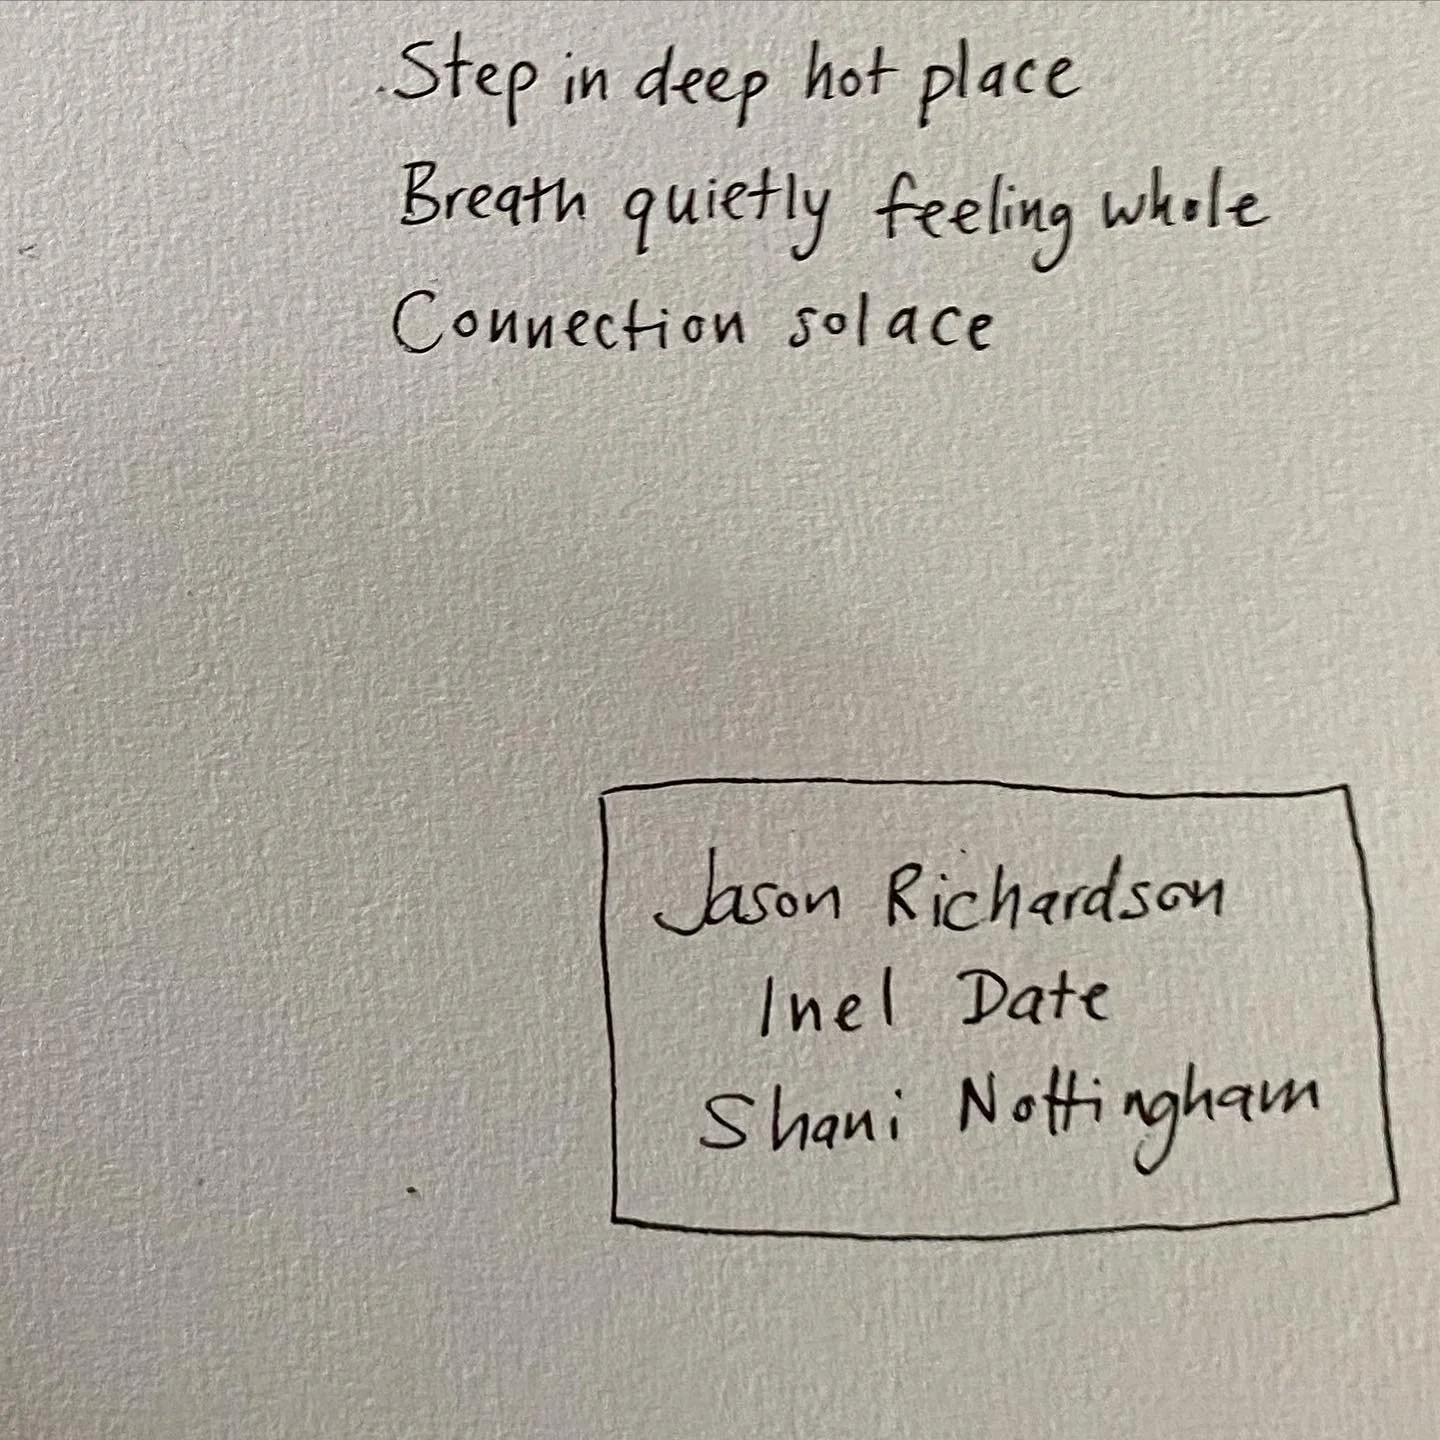 Step in deep hot place
Breath quietly feeling whole
Connection solace
Jason Richardson
Inel Date
Shani Nottingham